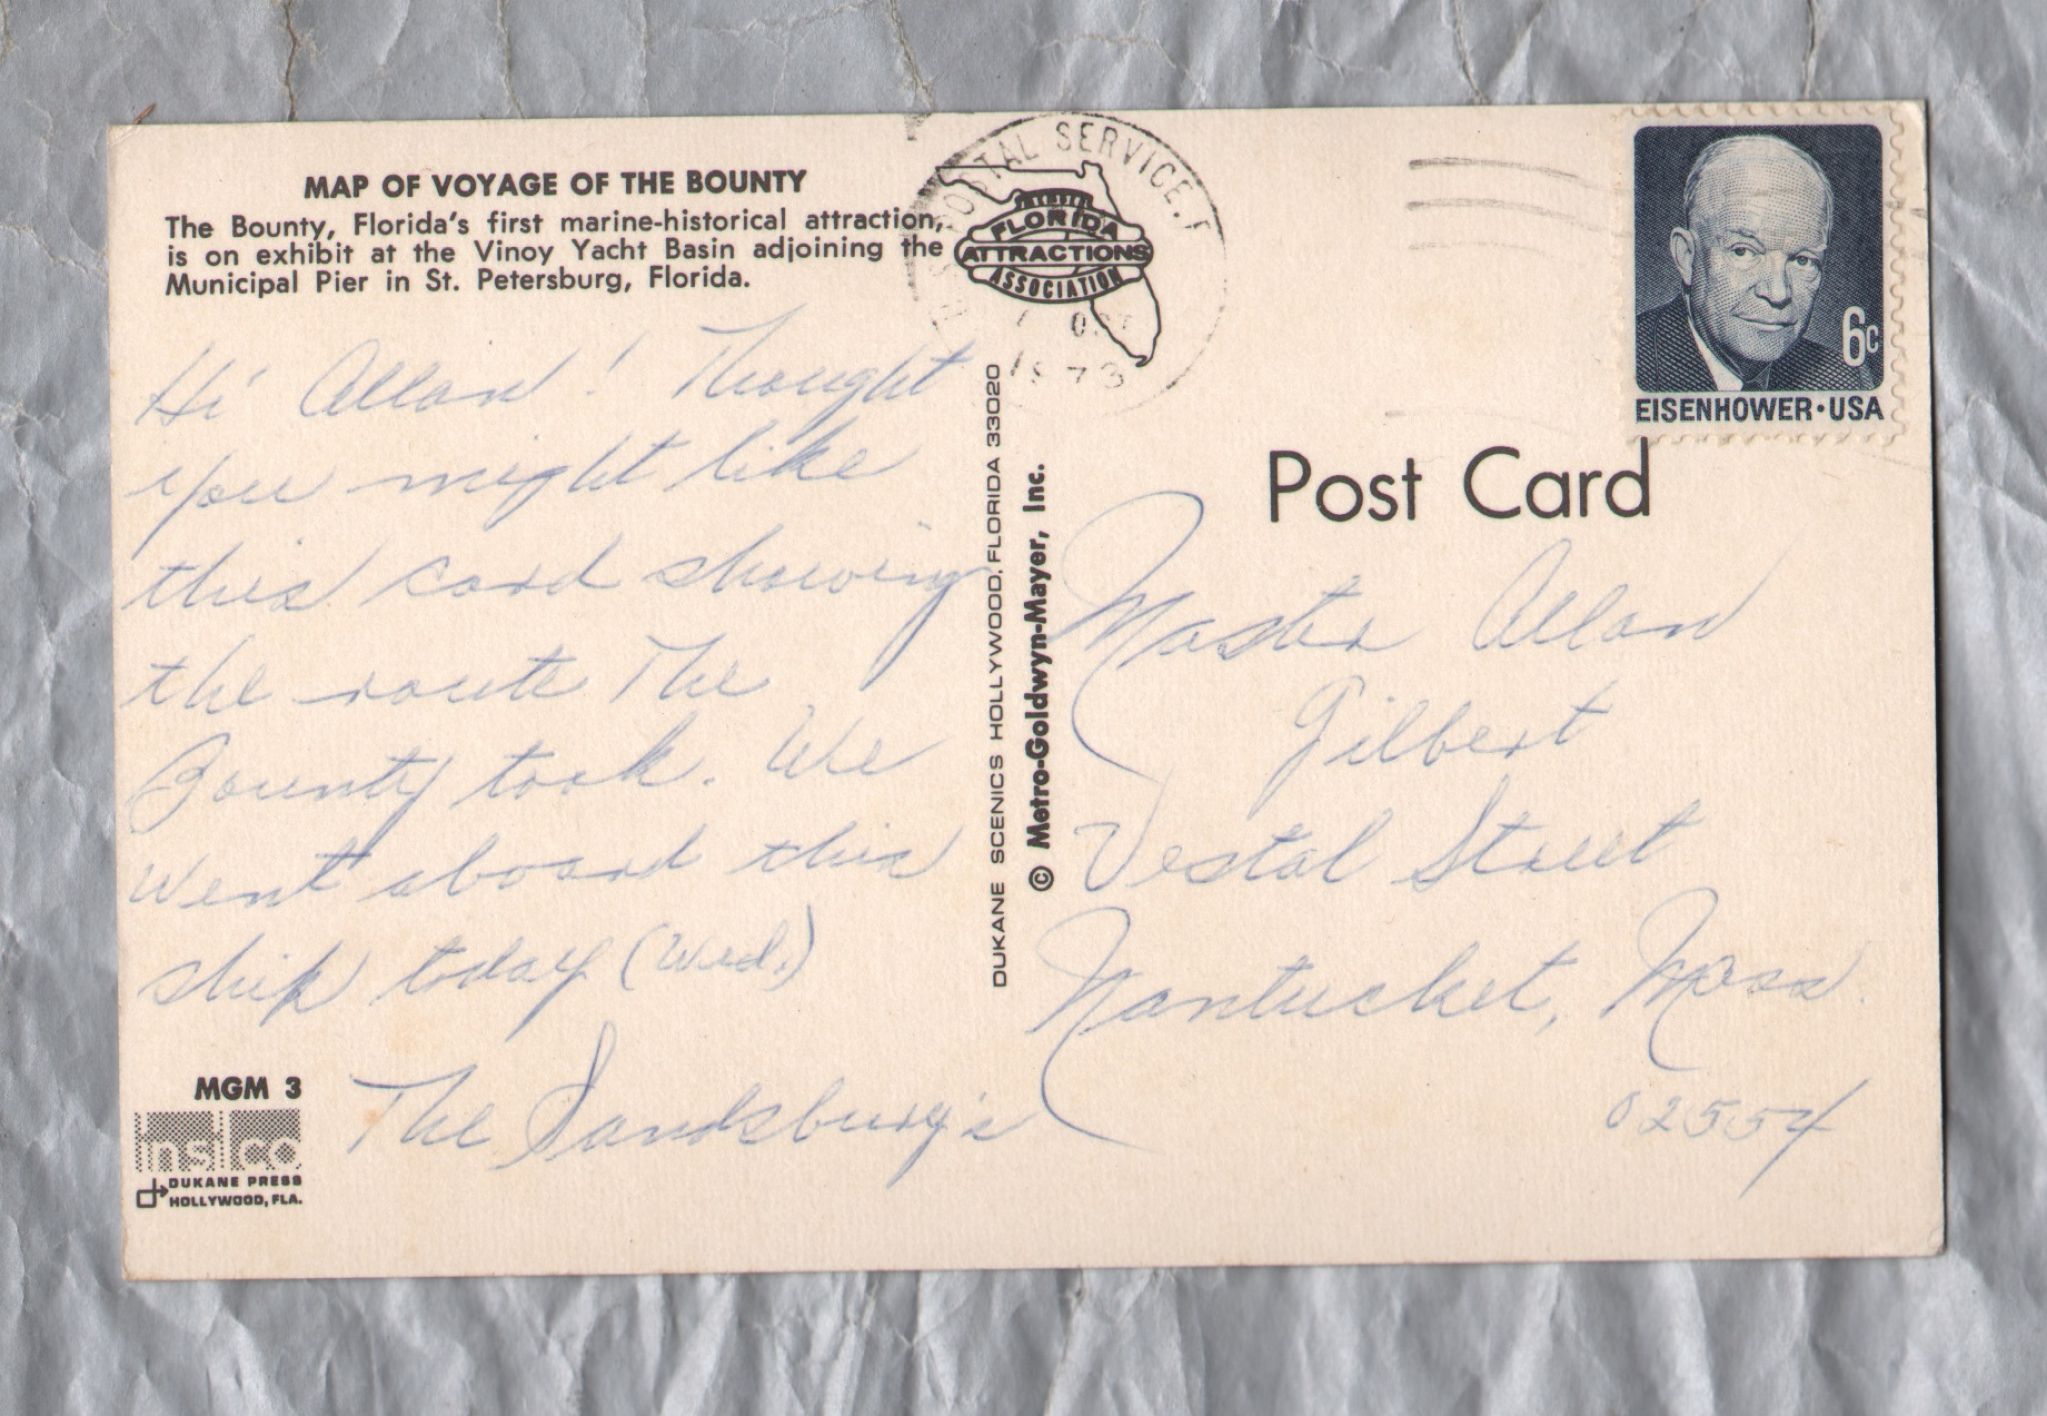 MAP OF VOYAGE OF THE BOUNTY
The Bounty, Florida's first marine-historical attraction,
is on exhibit at the Vinoy Yacht Basin adjoining the
Municipal Pier in St. Petersburg, Florida.
Hi Allan! Thought
you might like
this card showing
the route The
Bounty took. We
went aboard this
ship today (Wed.)
The Sandsbury's
MGM 3
DUKANE PRESS
HOLLYWOOD, FLA.
POSTAL SERVICE, F
FLORIDA
ATTRACTIONS
ASSOCIATION
1973
DUKANE SCENICS HOLLYWOOD, FLORIDA 33020
© Metro-Goldwyn-Mayer, Inc.
6c
EISENHOWER·USA
Post Card
Master Allan
Gilbert
Vestal Street
Nantucket, Mass.
02554